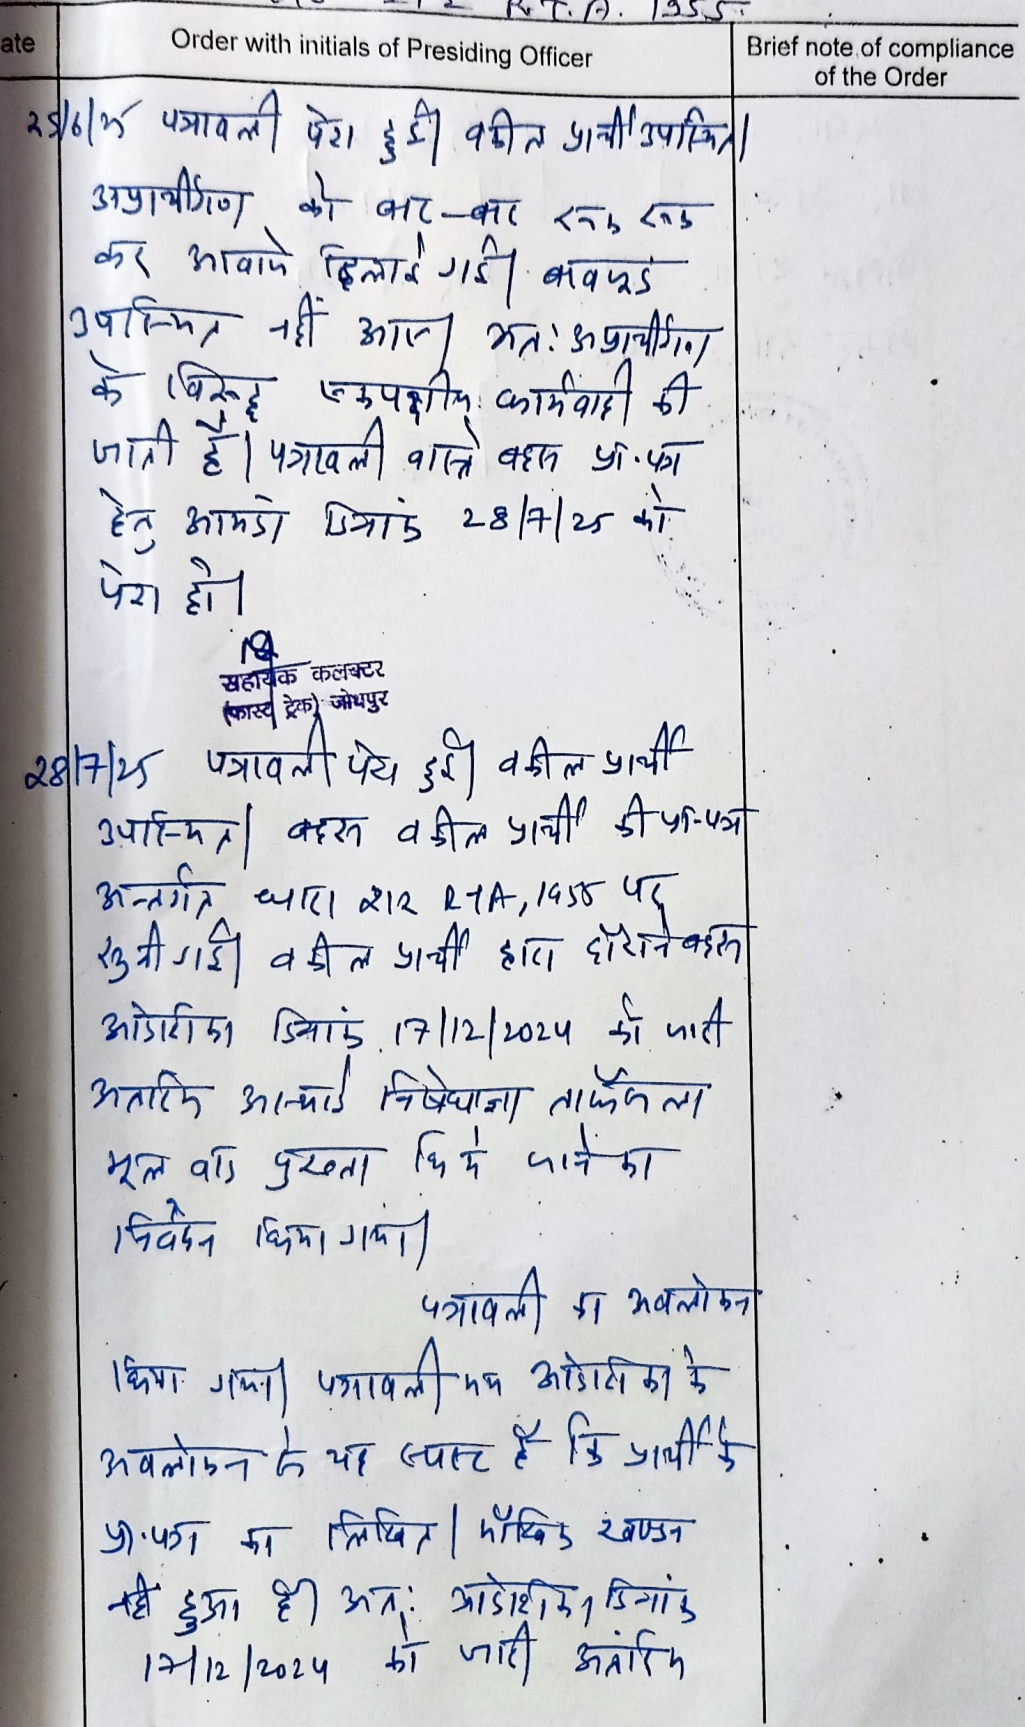 212 R.T.A. 1955.
ate
Order with initials of Presiding Officer
Brief note of compliance
of the Order
25/6/25 पत्रावली पेश हुई। वकील प्रार्थी उपस्थित।
अप्रार्थीगण को बार-बार रूक रूक
कर आवाजे दिलाई गई। बावजूद
उपस्थित नहीं आए। अतः अप्रार्थीगण
के विरूद्ध एकपक्षीय कार्यवाही की
जाती है। पत्रावली वास्ते बहस प्रा.पत्र
हेतु आयन्दा दिनांक 28/7/25 को
पेश हो।
सहायक कलक्टर
(फास्ट ट्रेक) जोधपुर
28/7/25 पत्रावली पेश हुई। वकील प्रार्थी
उपस्थित। बहस वकील प्रार्थी की प्रा-पत्र
अन्तर्गत धारा 212 RTA, 1955 पर
सुनी गई। वकील प्रार्थी द्वारा दौराने बहस
आदेशिका दिनांक 17/12/2024 को जारी
अंतरिम अस्थाई निषेधाज्ञा ताफैसला
मूल वाद पुख्ता किये जाने का
निवेदन किया गया।
पत्रावली का अवलोकन
किया गया। पत्रावली मय आदेशिका के
अवलोकन से यह स्पष्ट है कि प्रार्थी के
प्रा.पत्र का लिखित/मौखिक खण्डन
नही हुआ है। अतः आदेशिका दिनांक
17/12/2024 को जारी अंतरिम